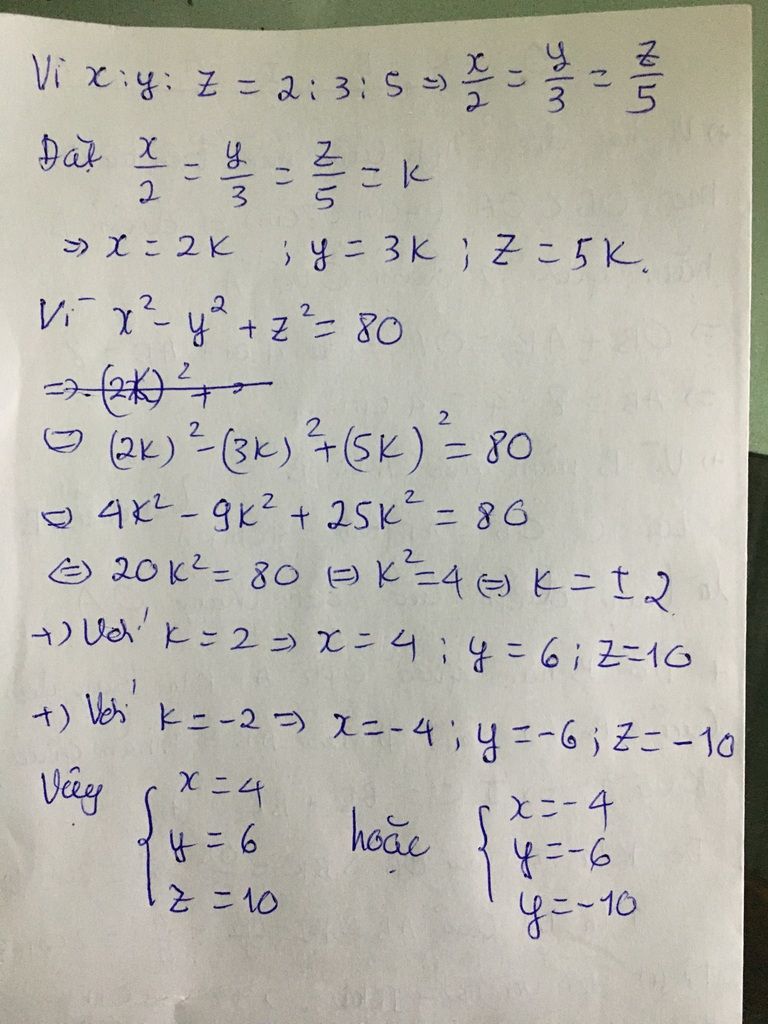 Vì x : y : z = 2 : 3 : 5 => x/2 = y/3 = z/5
Đặt x/2 = y/3 = z/5 = k
=> x = 2k ; y = 3k ; z = 5k.
Vì x² - y² + z² = 80
=> (2k)² +
<=> (2k)² - (3k)² + (5k)² = 80
<=> 4k² - 9k² + 25k² = 80
<=> 20k² = 80 <=> k² = 4 <=> k = ± 2
+) Với k = 2 => x = 4 ; y = 6 ; z = 10
+) Với k = -2 => x = -4 ; y = -6 ; z = -10
Vậy { x = 4 y = 6 z = 10 hoặc { x = -4 y = -6 y = -10